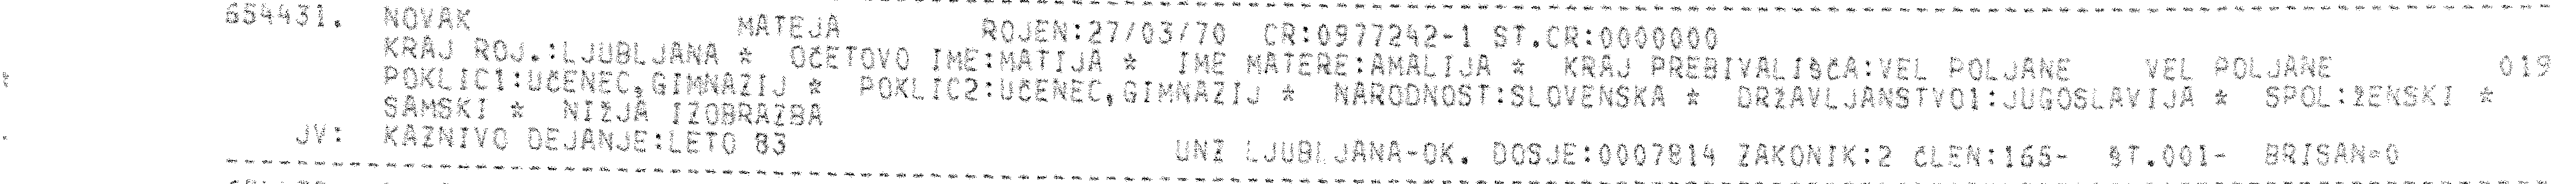 654431. NOVAK MATEJA ROJEN:27/03/70 CR:0977242-1 ST.CR:0000000
KRAJ ROJ.:LJUBLJANA * OČETOVO IME:MATIJA * IME MATERE:AMALIJA * KRAJ PREBIVALIŠČA:VEL POLJANE VEL POLJANE 019
POKLIC1:UČENEC,GIMNAZIJ * POKLIC2:UČENEC,GIMNAZIJ * NARODNOST:SLOVENSKA * DRŽAVLJANSTVO1:JUGOSLAVIJA * SPOL:ŽENSKI *
SAMSKI * NIŽJA IZOBRAZBA
JV: KAZNIVO DEJANJE:LETO 83 UNZ LJUBLJANA-OK. DOSJE:0007814 ZAKONIK:2 ČLEN:165- ŠT.001- BRISAN=0